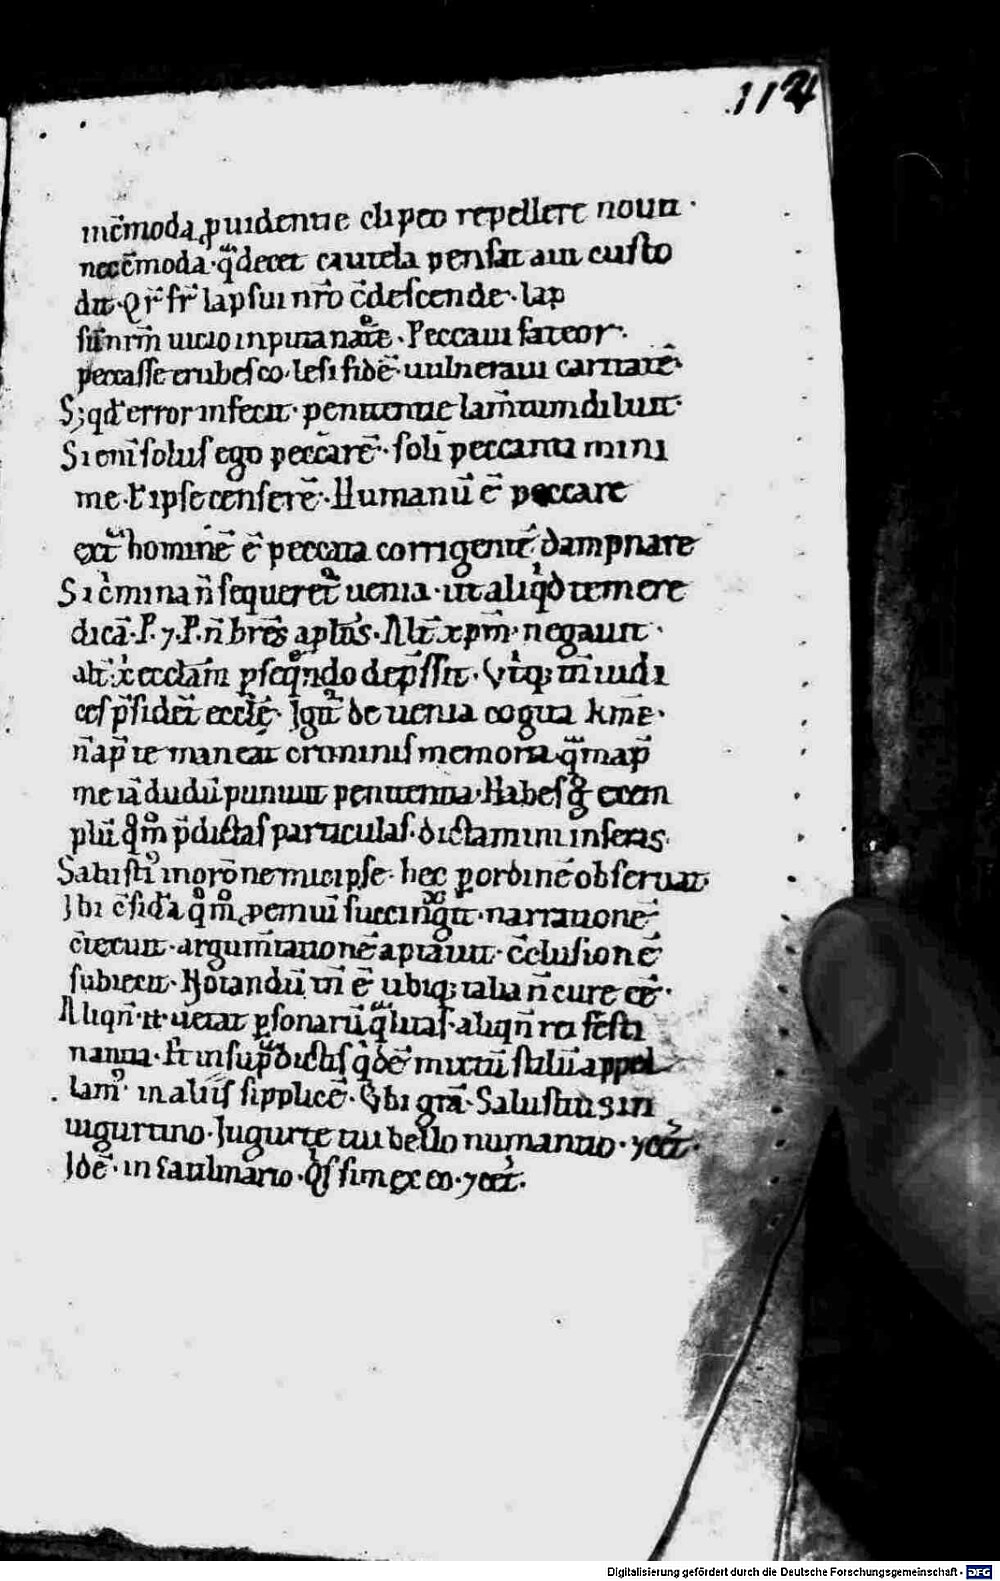 .114
inc̄moda ꝓuidentie clipeo repellere nouit·
nec c̄moda· qͣ decet cautela pensat aut custo
dit· Qr̄ fr̄ lapsui nr̄o c̄descende· lap
sū nr̄m uicio inputa nat͛e· Peccaui fateor·
peccasse erubesco· lesi fidē· uulneraui caritatē·
Sꝫ qd̛ error infecit· penitentie lam̄tum diluit·
Si eni̅ solus ego peccarē· soli peccanti mini
me· ipse censerē· Humanū ē peccare
extͣ hominē ē peccata corrigentē dampnare
Si c̄mina n̄ sequeret᷑ uenia· ut aliqͥd temere
dicā· P· ⁊· P· n̄ hr̄es apl̄os· Alt̄ xp̄m· negauit·
alt̄ x̄ ecclām ꝑseqͤndo dep̄ssit· Vtͥqꝫ tn̄ iudi
ces p̄sidet̄ eccl̄ę· Igit᷑ de uenia cogita kmē·
n̄ ap̄ te maneat criminis memoria qͣm ap̄
me iā dudū puniuit penitentia· Habes gͦ exem
plū qͦm p̄dictas particulas· dictamini inseras·
Salusti᷒ in orōne micipse· hec ꝑ ordinē obseruat·
Ibi c̄sid̛a qͦm ꝓemiū succingit· narrationē
c̄texuit· argum̄tationē aptauit· c̄clusionē
subiecit· Notandū tn̄ ē ubiqꝫ talia n̄ cure eē·
Aliqn̄· n̄· uetat ꝑsonarū qͣlitas· aliqn̄ rei festi
nantia· Et in supͣdictis qͥdē mixtū stilū appel
lam᷒· in aliis simplicē· Vbi grā· Salustius in
iugurtino· Iugurte tui bello numantio· ⁊cet᷑·
Idē· in catilinario· Qͥs sim ex eo· ⁊cet᷑·
Digitalisierung gefördert durch die Deutsche Forschungsgemeinschaft - DFG